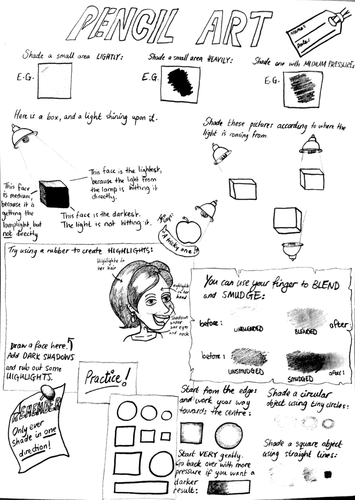 PENCIL ART
Name:
Date:
Shade a small area LIGHTLY:
E.G.
Shade a small area HEAVILY:
E.G.
Shade one with MEDIUM PRESSURE:
E.G.
Here is a box, and a light shining upon it.
This face is the lightest,
because the light from
the lamp is hitting it
directly.
This face
is medium,
because it is
getting the
lamplight, but
not directly
This face is the darkest.
The light is not hitting it.
Shade these pictures according to where the
light is coming from
A tricky one!
Try using a rubber to create HIGHLIGHTS:
Highlights in
her hair
Highlights in
her
Shadows under
her eyes
and neck
Draw a face here.
Add DARK SHADOWS
and rub out some
HIGHLIGHTS.
Practice!
You can use your finger to BLEND
and SMUDGE:
before:
UNBLENDED
BLENDED
after
before:
UNSMUDGED
SMUDGED
after:
REMEMBER
Only ever
shade in one
direction!
Start from the edges
and work your way
towards the centre:
Start VERY gently.
Go back over with more
pressure if you want a
darker
result:
Shade a circular
object using tiny circles:
Shade a square object
using straight lines: